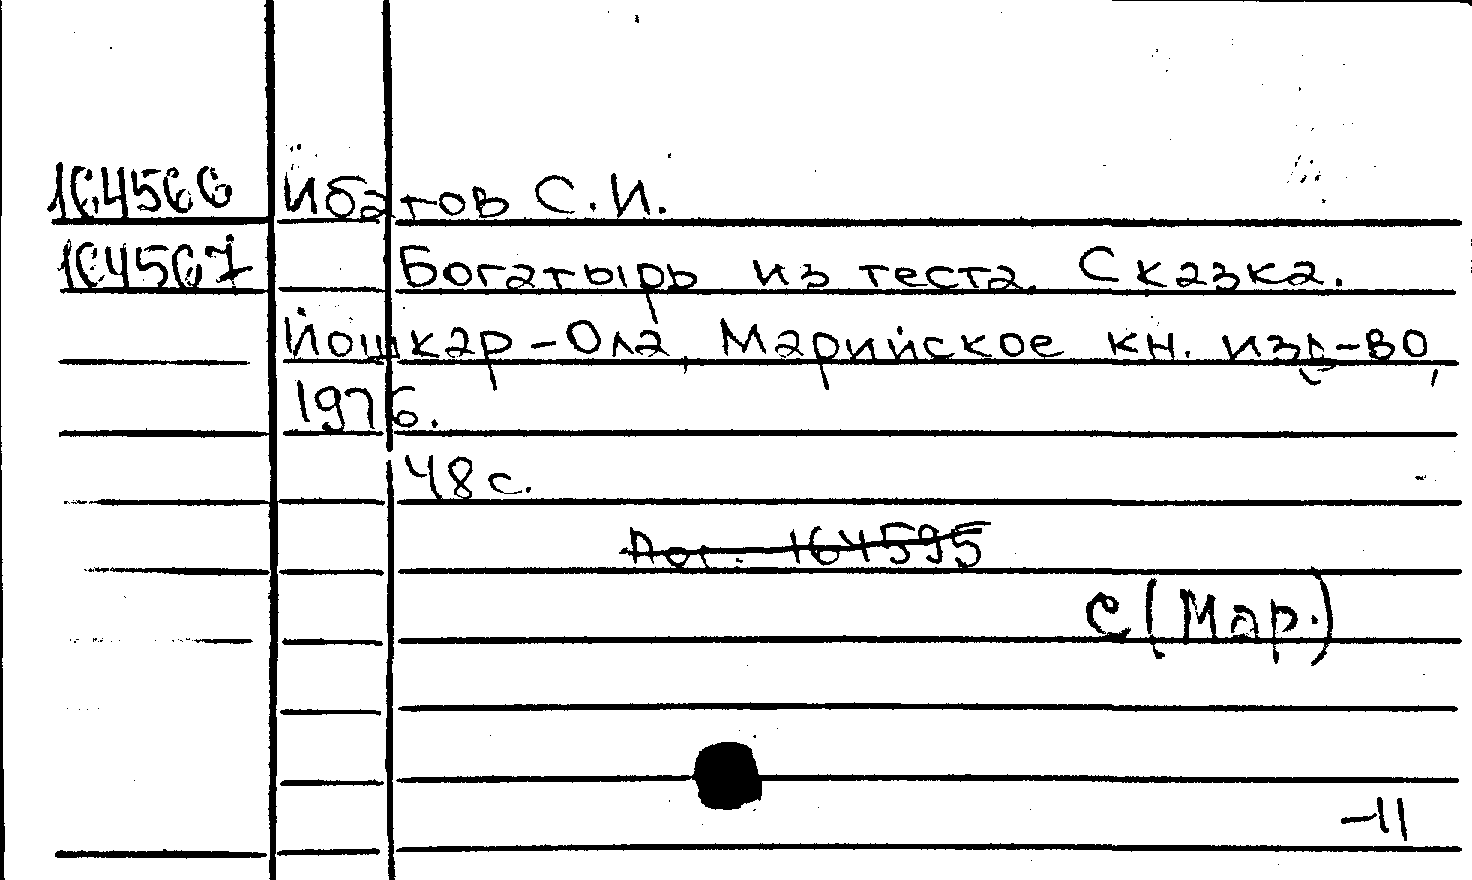 164566 Ибатов С.И.
164567 Богатырь из теста. Сказка.
Йошкар-Ола, Марийское кн. изд-во,
1976.
48 с.
164595
С (Мар.)
-11